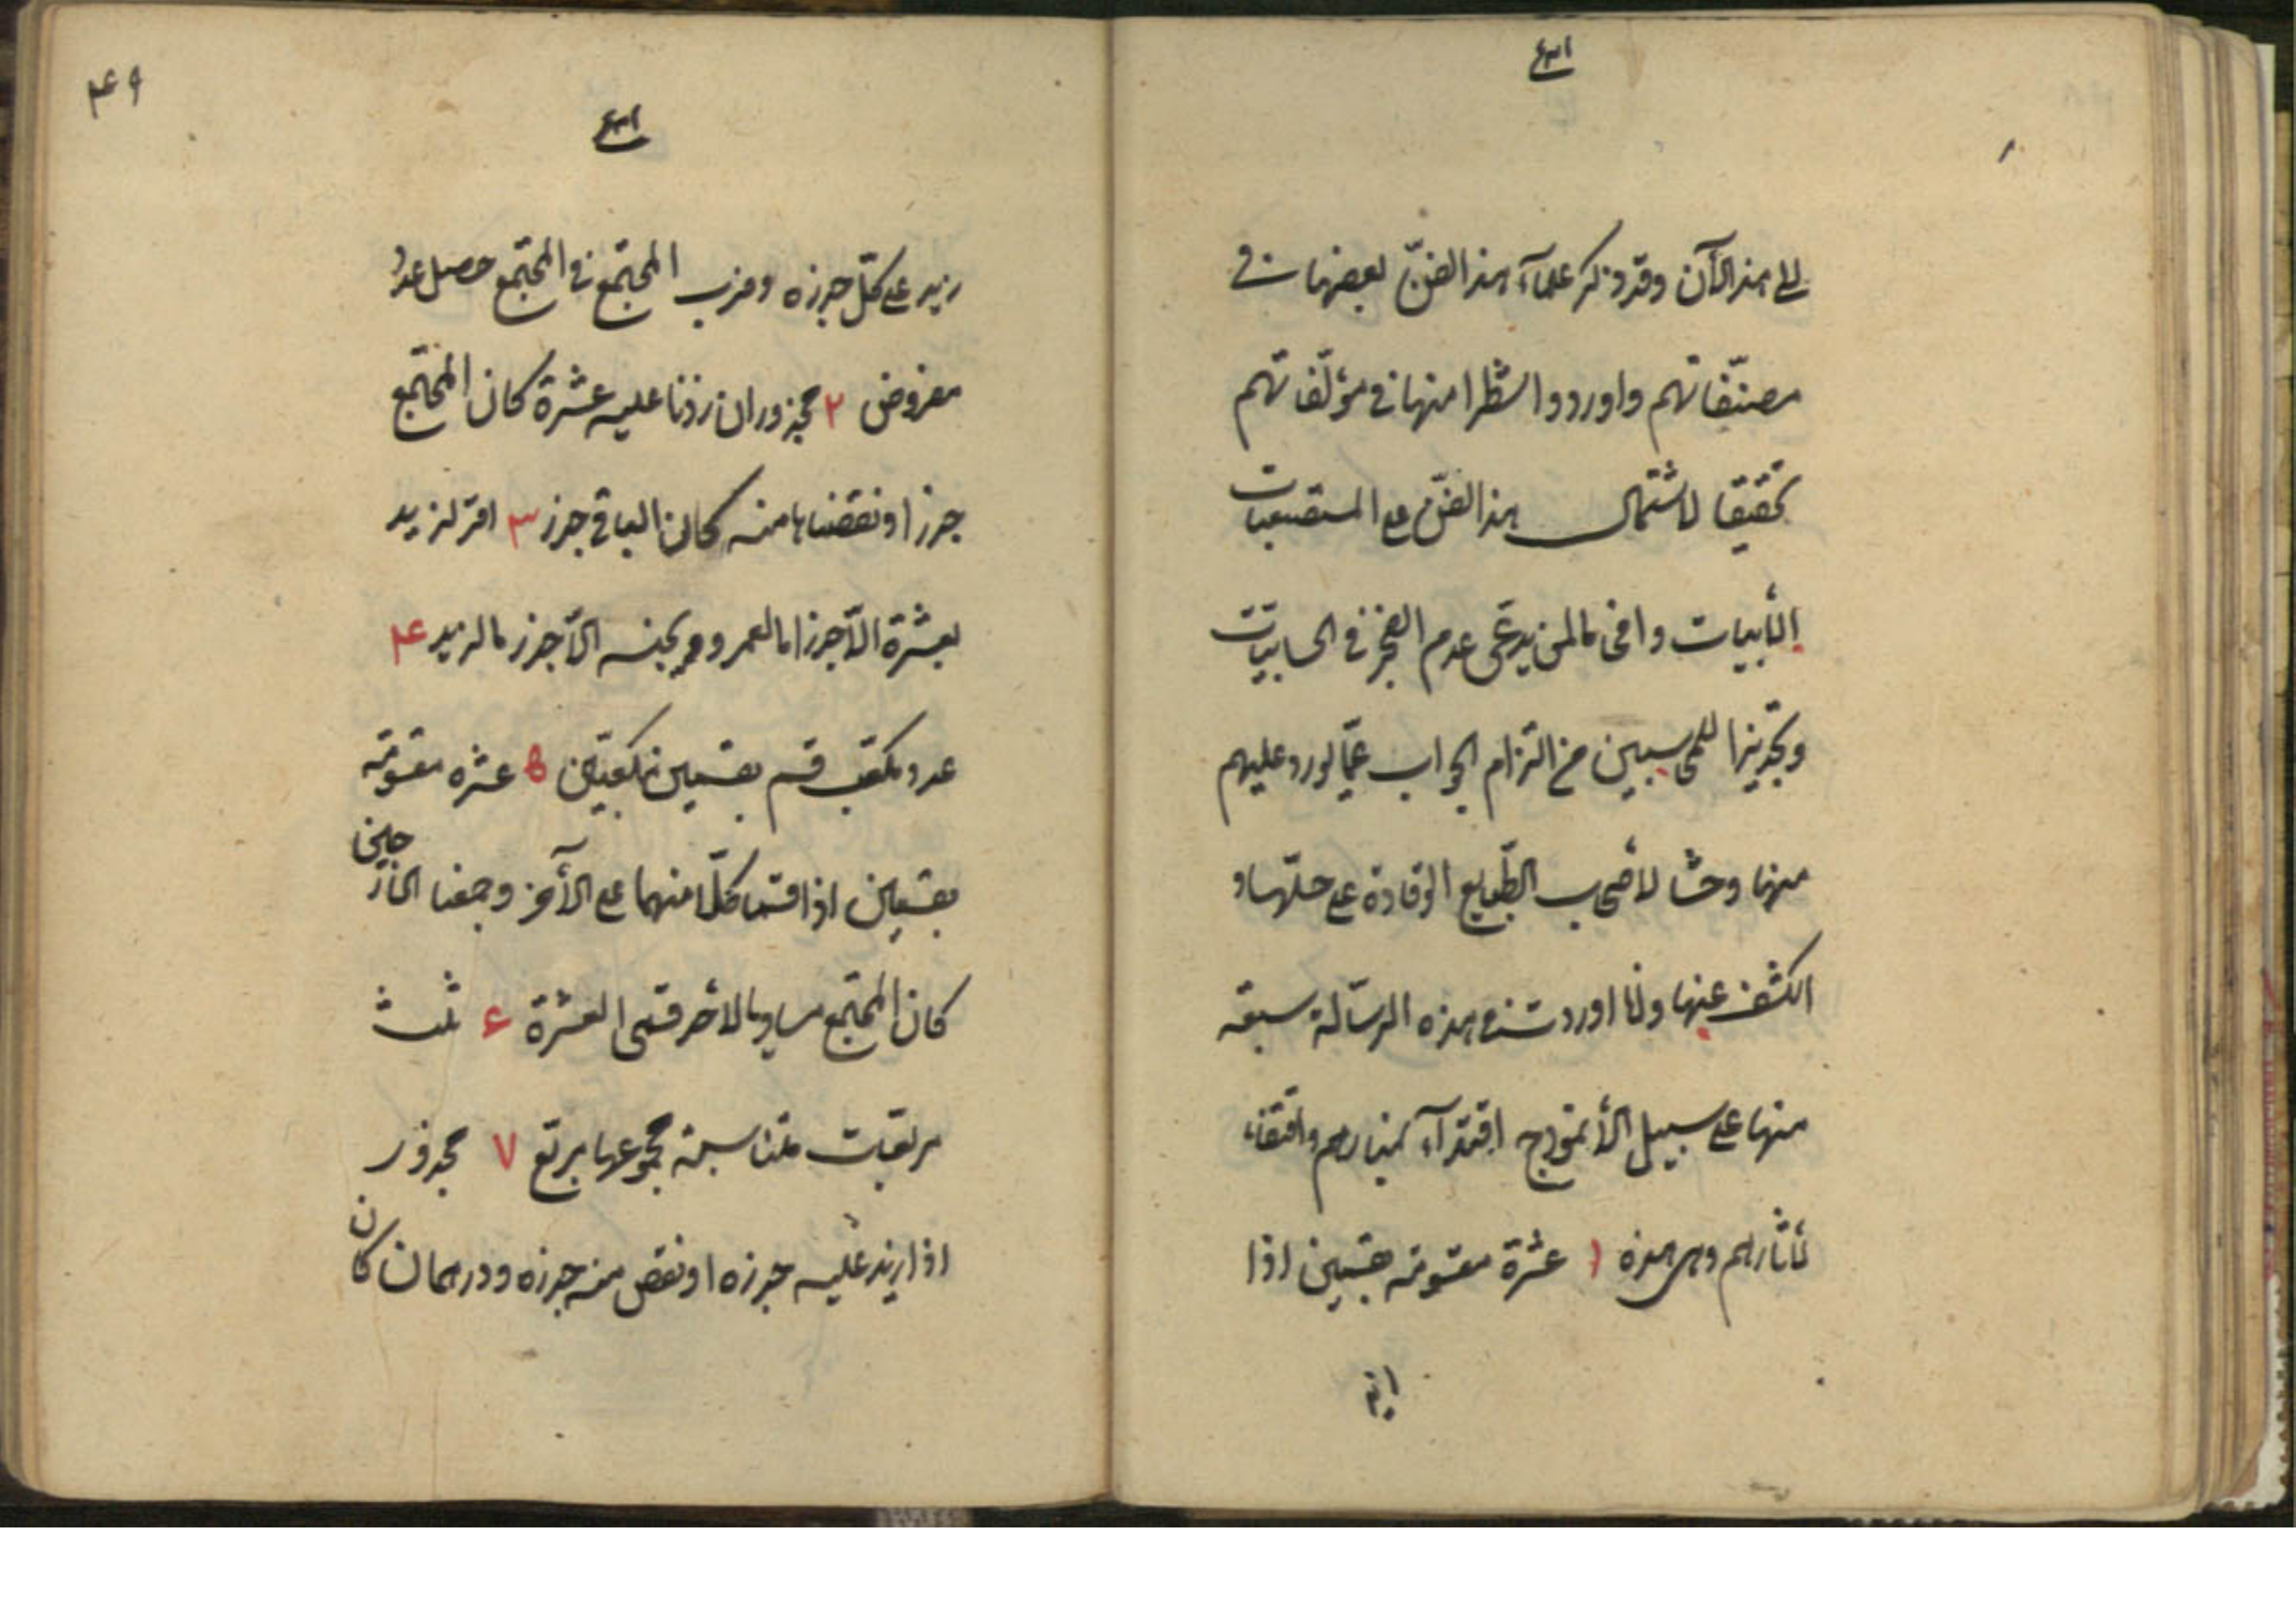 الى هذا الآن وقد ذكر علمآء هذا الفنّ بعضها فى
مصنّفاتهم واوردوا شطرا منها فى مؤلّفاتهم
تحقيقا لاشتمال هذا الفنّ على المستصعبات
الأبيات وافحاما لمن يدعّى عدم العجز فى الحسابيّات
وتحذيرا للمحاسبين من التزام الجواب عمّا يورد عليهم
منها وحثّا لأصحاب الطّبايع الوقادة على حلّها و
الكشف عنها وانا اوردت فى هذه الرّسالة سبعة
منها على سبيل الأنموذج اقتدآء بمنارهم واقتفاء
لأثارهم وهى هذه ١ عشرة مقسومة بقسمين اذا
زيد
۴۹
زيد على كلّ جذره وضرب المجتمع فى المجتمع حصل عدد
مفروض ٢ مجذور ان زدنا عليه عشرة كان المجتمع
جذرا ونقصناها منه كان الباقى جذر ٣ اقر لزيد
بعشرة الّا جذر ما لعمرو وبخمسة الّا جذر ما لزيد ۴
عدد مكعّب قسم بقسمين مكعبّين ۵ عشره مقسومة
بقسمين اذا قسمنا كلّا منهما على الآخر وجمعنا الخارجين
كان المجتمع مساويا لاحد قسمى العشرة ۶ ثلث
مربّعات متناسبة مجموعها مربّع ٧ مجذور
اذا زيد عليه جذره ودرهمان او نقص منه جذره ودرهمان كان